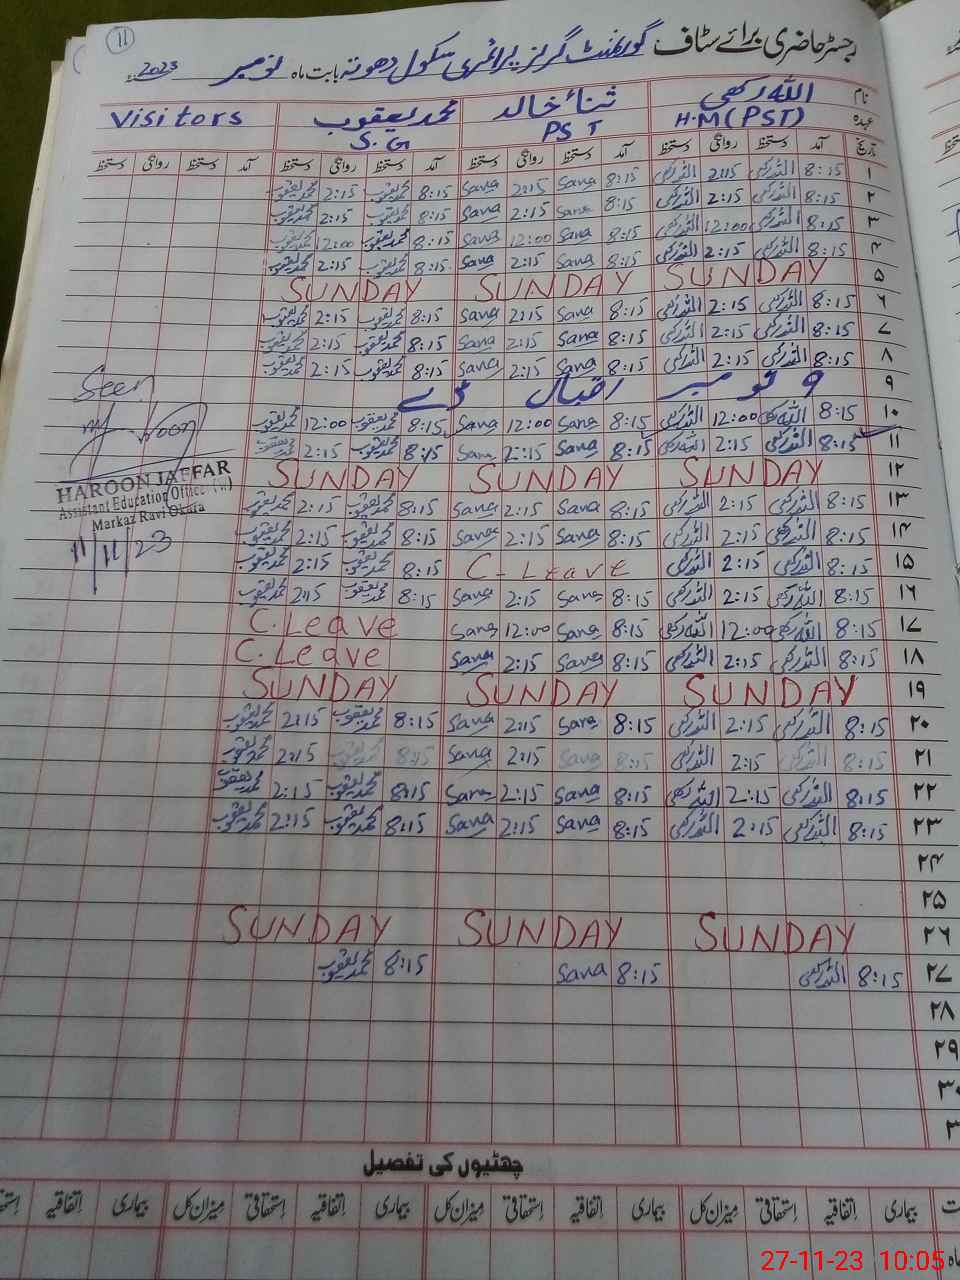 11
رجسٹر حاضری برائے سٹاف گورنمنٹ گرلز پرائمری سکول دھوتہ بابت ماہ نومبر 2023ء
نام اللہ رکھی ثناء خالد محمد یعقوب Visitors
عہدہ H.M(PST) PST S.G
تاریخ آمد دستخط روانگی دستخط آمد دستخط روانگی دستخط آمد دستخط روانگی دستخط آمد دستخط روانگی دستخط
۱ 8:15 اللہ رکھی 2:15 اللہ رکھی 8:15 Sana 2:15 Sana 8:15 محمد یعقوب 2:15 محمد یعقوب
۲ 8:15 اللہ رکھی 2:15 اللہ رکھی 8:15 Sana 2:15 Sana 8:15 محمد یعقوب 2:15 محمد یعقوب
۳ 8:15 اللہ رکھی 12:00 اللہ رکھی 8:15 Sana 12:00 Sana 8:15 محمد یعقوب 12:00 محمد یعقوب
۴ 8:15 اللہ رکھی 2:15 اللہ رکھی 8:15 Sana 2:15 Sana 8:15 محمد یعقوب 2:15 محمد یعقوب
۵ SUNDAY SUNDAY SUNDAY
۶ 8:15 اللہ رکھی 2:15 اللہ رکھی 8:15 Sana 2:15 Sana 8:15 محمد یعقوب 2:15 محمد یعقوب
۷ 8:15 اللہ رکھی 2:15 اللہ رکھی 8:15 Sana 2:15 Sana 8:15 محمد یعقوب 2:15 محمد یعقوب
۸ 8:15 اللہ رکھی 2:15 اللہ رکھی 8:15 Sana 2:15 Sana 8:15 محمد یعقوب 2:15 محمد یعقوب
۹ ۹ نومبر اقبال ڈے
۱۰ 8:15 اللہ رکھی 12:00 اللہ رکھی 8:15 Sana 12:00 Sana 8:15 محمد یعقوب 12:00 محمد یعقوب
۱۱ 8:15 اللہ رکھی 2:15 اللہ رکھی 8:15 Sana 2:15 Sana 8:15 محمد یعقوب 2:15 محمد یعقوب
۱۲ SUNDAY SUNDAY SUNDAY
۱۳ 8:15 اللہ رکھی 2:15 اللہ رکھی 8:15 Sana 2:15 Sana 8:15 محمد یعقوب 2:15 محمد یعقوب
۱۴ 8:15 اللہ رکھی 2:15 اللہ رکھی 8:15 Sana 2:15 Sana 8:15 محمد یعقوب 2:15 محمد یعقوب
۱۵ 8:15 اللہ رکھی 2:15 اللہ رکھی C-Leave 8:15 محمد یعقوب 2:15 محمد یعقوب
۱۶ 8:15 اللہ رکھی 2:15 اللہ رکھی 8:15 Sana 2:15 Sana 8:15 محمد یعقوب 2:15 محمد یعقوب
۱۷ 8:15 اللہ رکھی 12:00 اللہ رکھی 8:15 Sana 12:00 Sana C.Leave
۱۸ 8:15 اللہ رکھی 2:15 اللہ رکھی 8:15 Sana 2:15 Sana C.Leave
۱۹ SUNDAY SUNDAY SUNDAY
۲۰ 8:15 اللہ رکھی 2:15 اللہ رکھی 8:15 Sana 2:15 Sana 8:15 محمد یعقوب 2:15 محمد یعقوب
۲۱ 8:15 اللہ رکھی 2:15 اللہ رکھی 8:15 Sana 2:15 Sana 8:15 محمد یعقوب 2:15 محمد یعقوب
۲۲ 8:15 اللہ رکھی 2:15 اللہ رکھی 8:15 Sana 2:15 Sana 8:15 محمد یعقوب 2:15 محمد یعقوب
۲۳ 8:15 اللہ رکھی 2:15 اللہ رکھی 8:15 Sana 2:15 Sana 8:15 محمد یعقوب 2:15 محمد یعقوب
۲۴
۲۵
۲۶ SUNDAY SUNDAY SUNDAY
۲۷ 8:15 اللہ رکھی 8:15 Sana 8:15 محمد یعقوب
۲۸
۲۹
۳۰
Seen
HAROON JAFFAR
Assistant Education Officer
Markaz Ravi Okara
11/11/23
چھٹیوں کی تفصیل
بیماری اتفاقیہ استحقاقی میزان کل بیماری اتفاقیہ استحقاقی میزان کل بیماری اتفاقیہ استحقاقی میزان کل بیماری اتفاقیہ
27-11-23 10:05